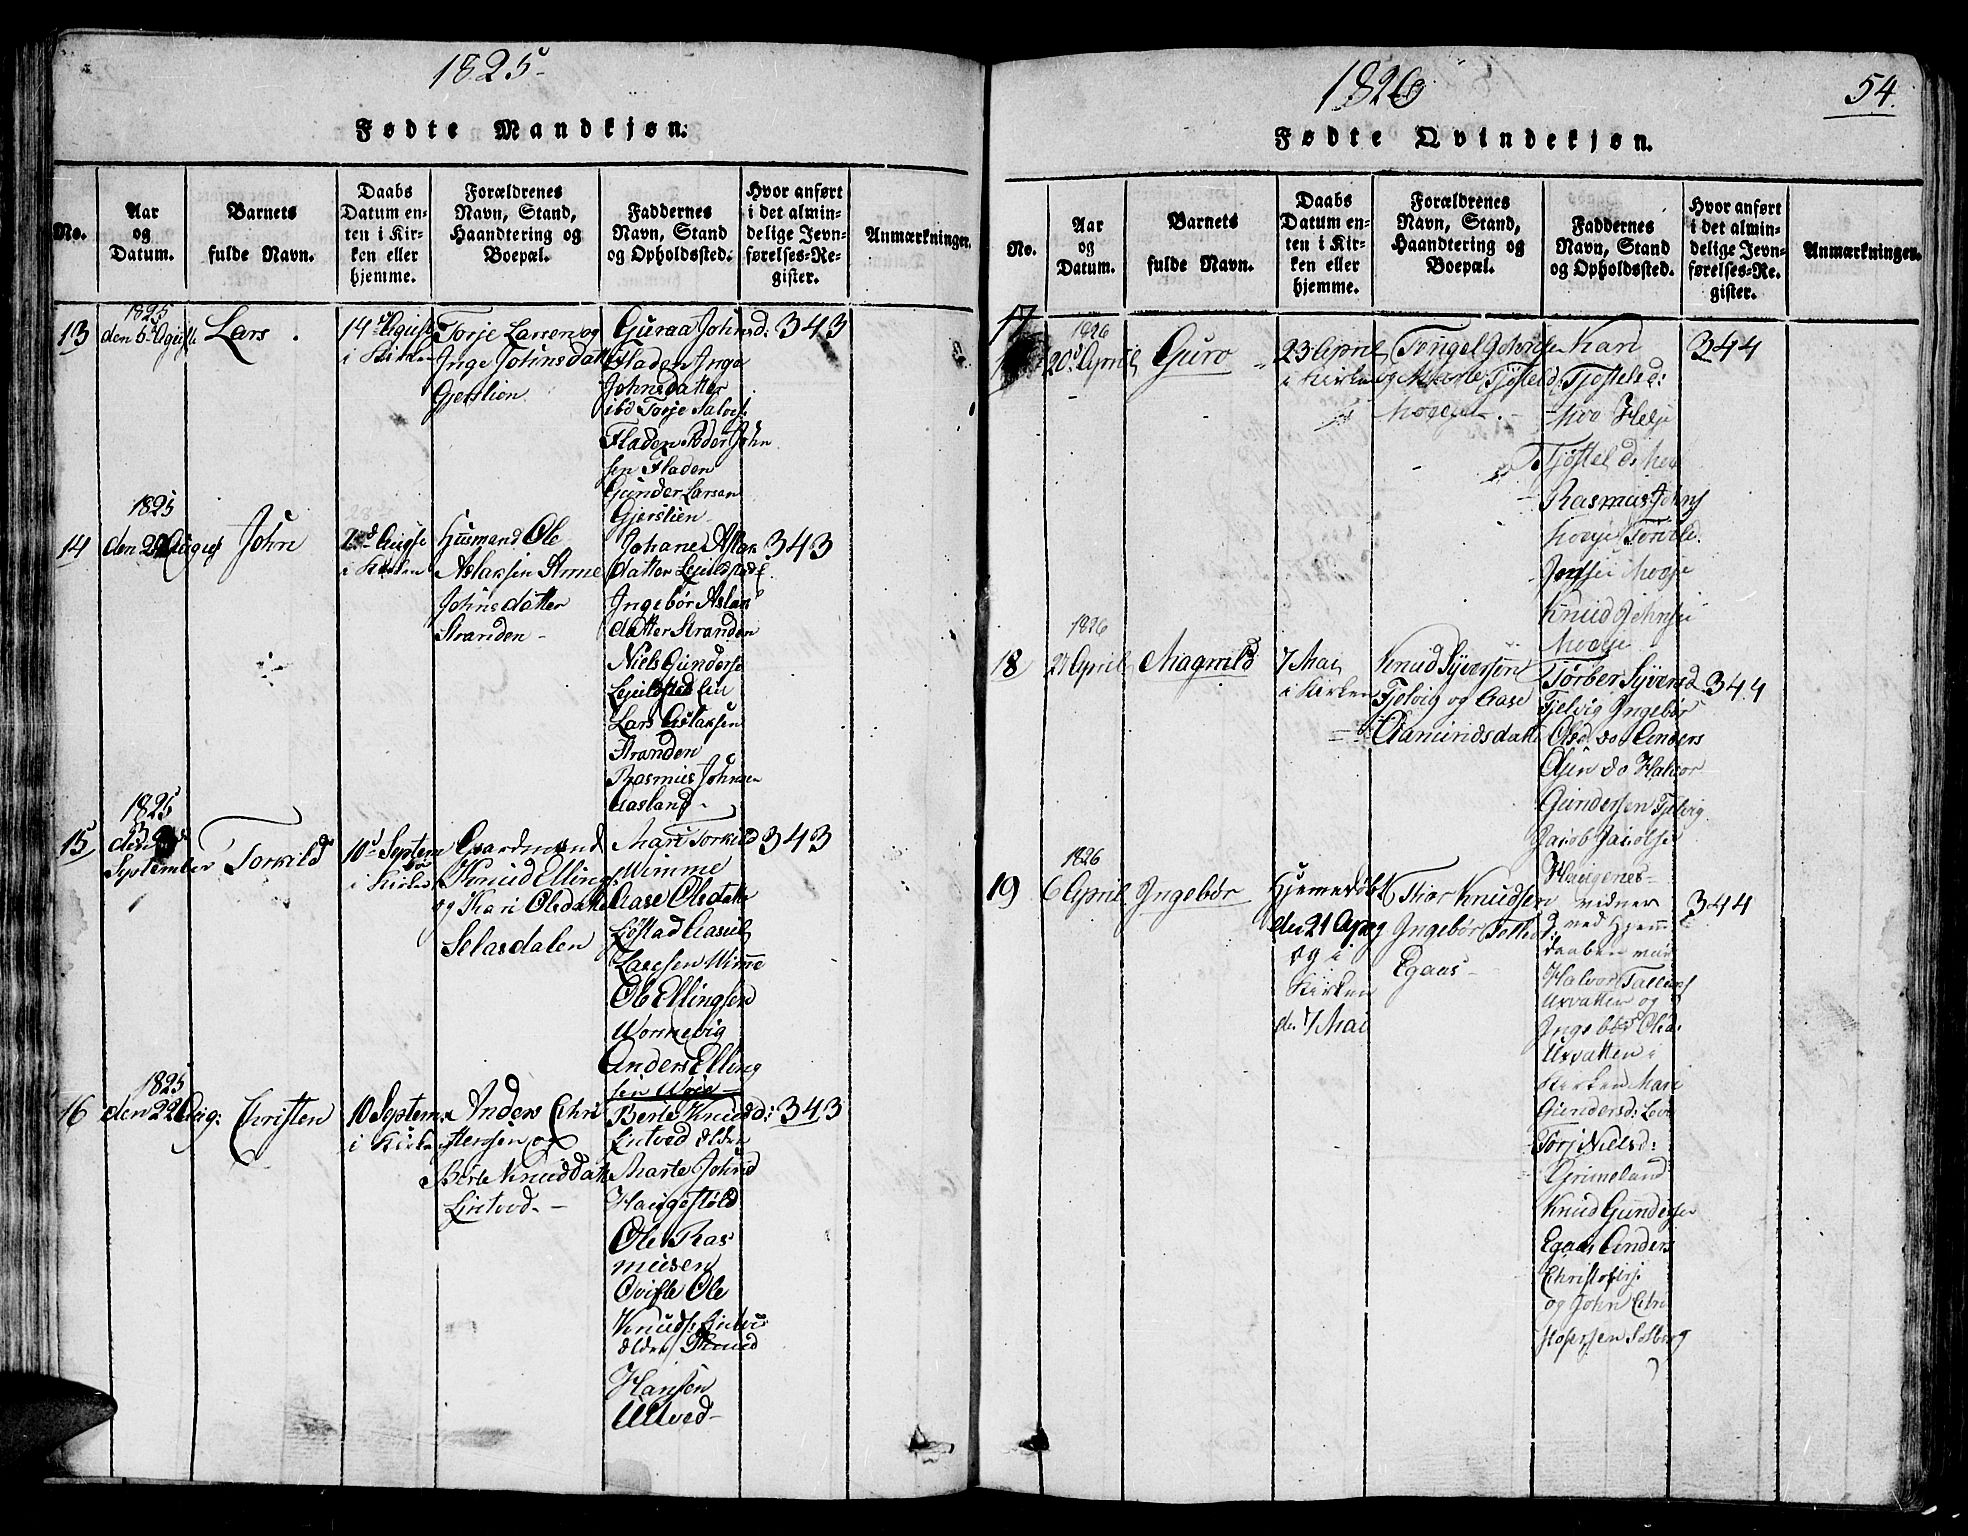 1825
Fødte Mandkjøn.
No.
Aar
og
Datum.
Barnets
fulde Navn.
Daabs
Datum en-
ten i Kir-
ken eller
hjemme.
Forældrenes
Navn, Stand,
Haandtering og
Boepæl.
Faddernes
Navn, Stand
og Opholdssted.
Hvor anført
i det almin-
delige Jevn-
førelses-Re-
gister.
Anmærkninger.
13
1825
den
Lars
14
i Kirken
Torje Larsen og
Inge Johnsdatter
Gjerslien
Guraa Johnsd:
Fladen Inge
Johnsdatter
ibd Torje
Fladen Peder John
sen Fladen
Gunder Larsen
Gjerslien
343
14
1825
den
John
i Kirken
Husmand Ole
Aslaksen Anne
Johnsdatter
Stranden
Johane Aslak
datter
Ingebor Aslak
datter Stranden
Niels Gunderse
Lars Aslaksen
Stranden
Rasmus Johnsen
Aasland
343
15
1825
September
Torkild
10d Septem
i Kirken
Gaardmand
Knud Ellings:
og Kari Olsdatte
Selasdalen
Mari Torkild
Mimme
Aase Olsdatte
Aasul
Larsen Mimme
Ole Ellingsen
Wormevig
Anders Elling
sen
343
16
1825
den 22 Aug:
Christen
10 Septem
i Kirken
Anders Chri
stensen og
Berte Knuddatte
Lintved
Berte Knudsd:
Lintved ælder
Marte Johnsd
Haugestøld
Ole Ras
musen
Ole
Knuds Lintve
ælder Knud
Hansen
Ultved
343
1826
54.
Fødte Qvindekjøn.
No.
Aar
og
Datum.
Barnets
fulde Navn.
Daabs
Datum en-
ten i Kir-
ken eller
hjemme.
Forældrenes
Navn, Stand,
Haandtering og
Boepæl.
Faddernes
Navn, Stand
og Opholdssted.
Hvor anført
i det almin-
delige Jevn-
førelses-Re-
gister.
Anmærkninger.
17
1826
20d April
Guro
23 April
i Kirken
Tengel Johnse
og Marte Tjøstelsd:
Moeje
Kari
Tjøstelsd:
Moe Helje
Tjøstelsd: Moe
Rasmus Johns
Moeje Torkild
Jensen Moeje
Knud Johnsen
Moeje
344
18
1826
April
Magnild
7 Mai
i Kirken
Knud Syversen
Tjelvig og Aase
Aamundsdatte
Torber Syversd
Tjelvig Ingebor
Olsd do Anders
Olsen do Halvor
Gundersen Tjelvig
Jacob Jacobse
Haugenes
344
19
1826
6 April
Ingebør
Hjemedøbt
den 21 Ap
og i
Kirken
de. 7 Mai
Thor Knudsen
og Ingebør Tolle
Egaas
vidner
ved Hjemme
daaben var
Halvor Tallefs
Urvatten og
Ingebor Olsd:
Urvatten i
Kirken Mari
Gundersd:
Torj Nielsd:
Grimeland
Knud Gunderse
Egaas Anders
Christofers
og John Chri
stofersen Solberg
344